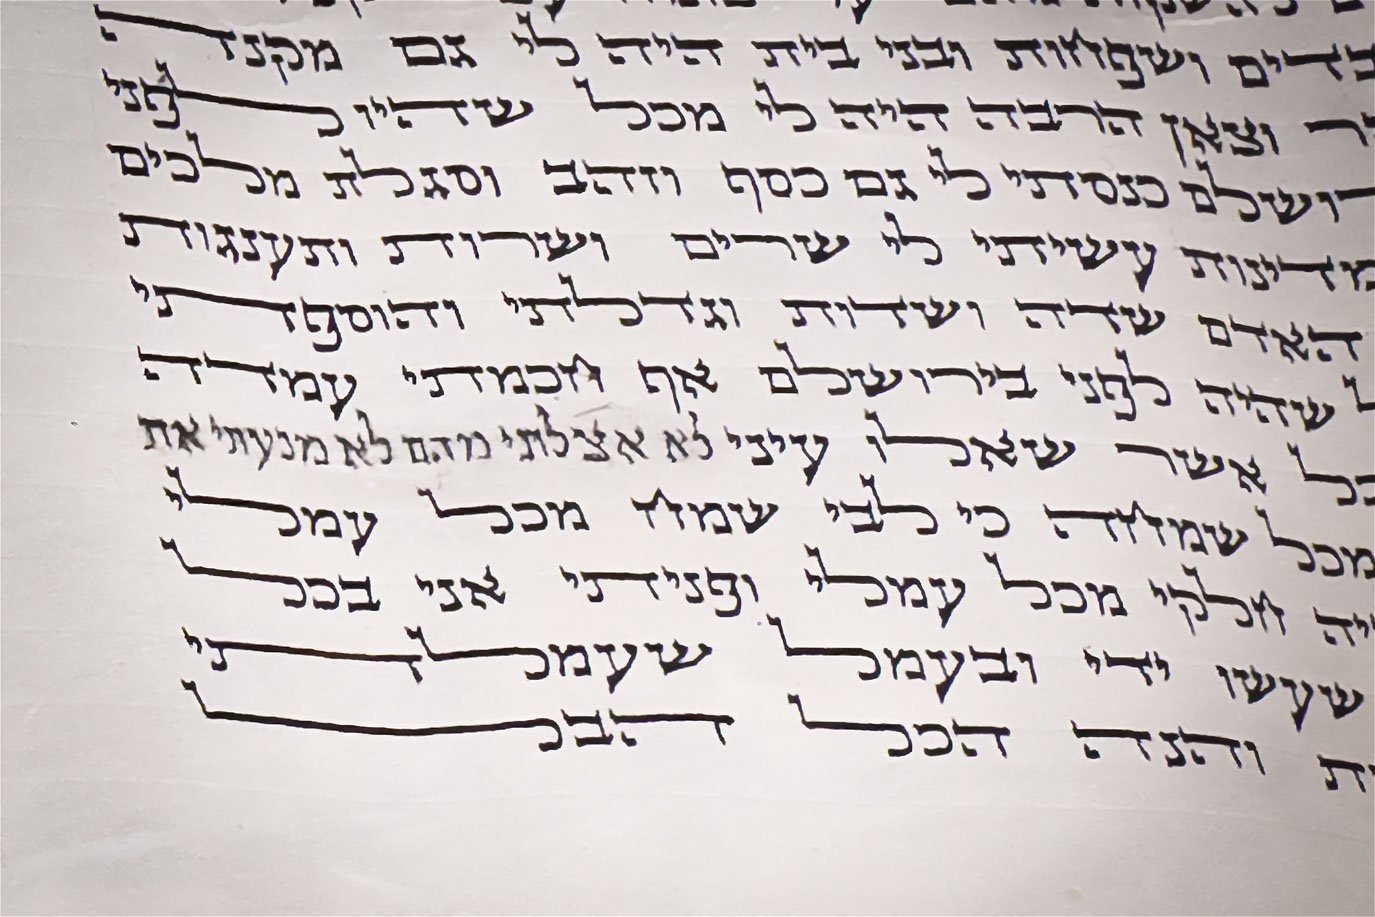 בדים ושפחות ובני בית היה לי גם מקנה
וצאן הרבה היה לי מכל שהיו לפני
רושלם כנסתי לי גם כסף וזהב וסגלת מלכים
מדינות עשיתי לי שרים ושרות ותענגות
האדם שדה ושדות וגדלתי והוספתי
ל שהיה לפני בירושלם אף חכמתי עמדה
כל אשר שאלו עיני לא אצלתי מהם לא מנעתי את
מכל שמחה כי לבי שמח מכל עמלי
יה חלקי מכל עמלי ופניתי אני בכל
שעשו ידי ובעמל שעמלתי
ת והנה הכל הבל